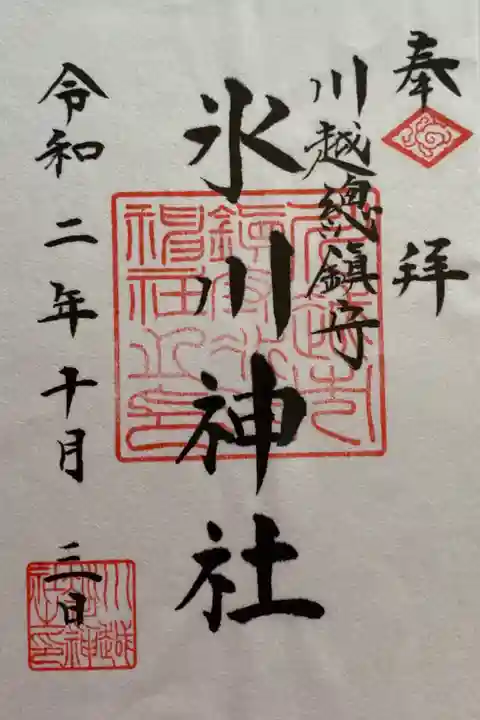 奉拝
川越總鎮守
氷川神社
令和二年十月三日